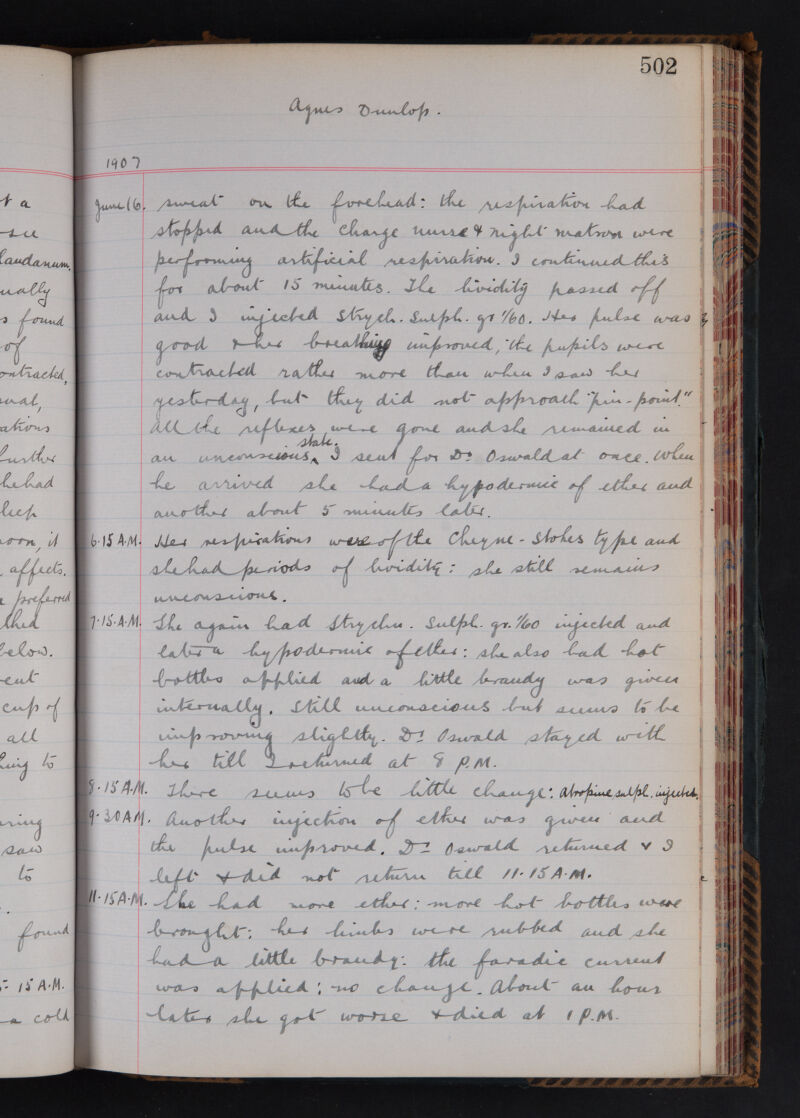 502
Agnes Dunlop.
1907
June 16. sweat on the forehead: the respiration had
stopped and the charge nurse & night matron were
performing artificial respiration. I continued this
for about 15 minutes. The lividity passed off
and I injected Strych. Sulph. gr 1/60. Her pulse was
good & her breathing improved, the pupils were
contracted rather more than when I saw her
yesterday, but they did not approach "pin-point."
All the reflexes were gone and she remained in
an unconscious state. I sent for Dr Oswald at once. When
he arrived she had a hypodermic of ether and
another about 5 minutes later.
6.15 A.M. Her respirations were of the Cheyne-Stokes type and
she had periods of lividity: she still remains
unconscious.
7.15.A.M. She again had Strychn. Sulph. gr. 1/60 injected and
later a hypodermic of ether: she also had hot
bottles applied and a little brandy was given
internally. Still unconscious but seems to be
improving slightly. Dr Oswald stayed with
her till I returned at 8 P.M.
8.15 A.M. There seems to be little change: Atropine sulph. injected.
9.30 A.M. Another injection of ether was given and
the pulse improved. Dr Oswald returned & I
left & did not return till 11.15 A.M.
11.15 A.M. She had more ether: more hot bottles were
brought: her limbs were rubbed and she
had a little brandy: the faradic current
was applied: no change. About an hour
later she got worse & died at 1 P.M.
t a
see
Laudanum.
ually
s found
of
ontracted,
ations
further
he had
oon, it
affects.
preferred
below.
cup of
all
hing to
saw
to
found
5.15 A.M.
a cold